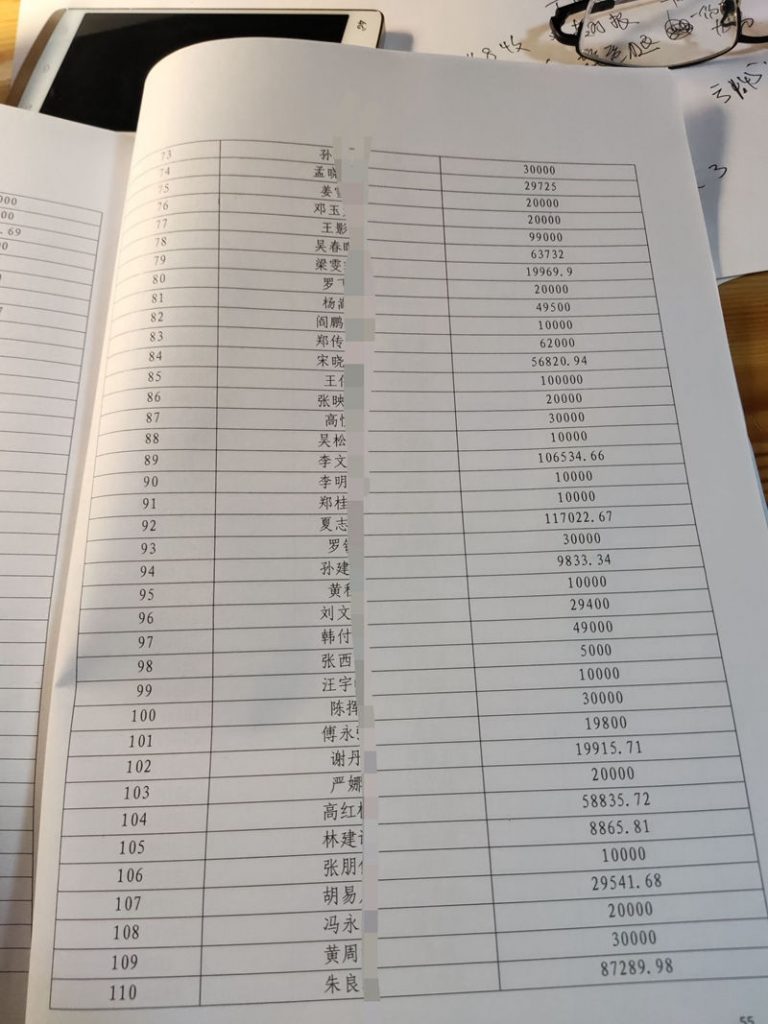 73 孙 30000
74 孟晓 29725
75 姜 20000
76 邓玉 20000
77 王影 99000
78 吴春 63732
79 梁雯 19969.9
80 罗 20000
81 杨 49500
82 阎鹏 10000
83 郑传 62000
84 宋晓 56820.94
85 王 100000
86 张映 20000
87 高 30000
88 吴松 10000
89 李文 106534.66
90 李明 10000
91 郑桂 10000
92 夏志 117022.67
93 罗 30000
94 孙建 9833.34
95 黄 10000
96 刘文 29400
97 韩付 49000
98 张西 5000
99 汪宇 10000
100 陈挥 30000
101 傅永 19800
102 谢丹 19915.71
103 严娜 20000
104 高红 58835.72
105 林建 8865.81
106 张朋 10000
107 胡易 29541.68
108 冯永 20000
109 黄周 30000
110 朱良 87289.98
55